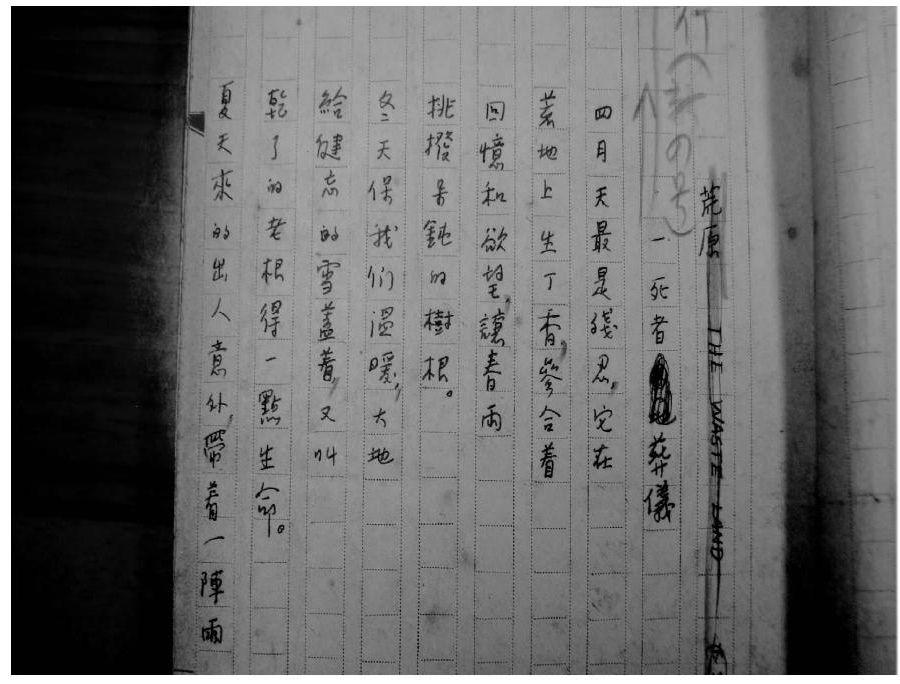 行(新の号)
荒原 THE WASTE LAND
一 死者葬儀
四月天最是殘忍,它在
荒地上生丁香,參合着
回憶和欲望,讓春雨
挑撥呆鈍的樹根。
冬天保我们溫暖,大地
給健忘的雪蓋着,又叫
乾了的老根得一點生命。
夏天來的出人意外,帶着一陣雨